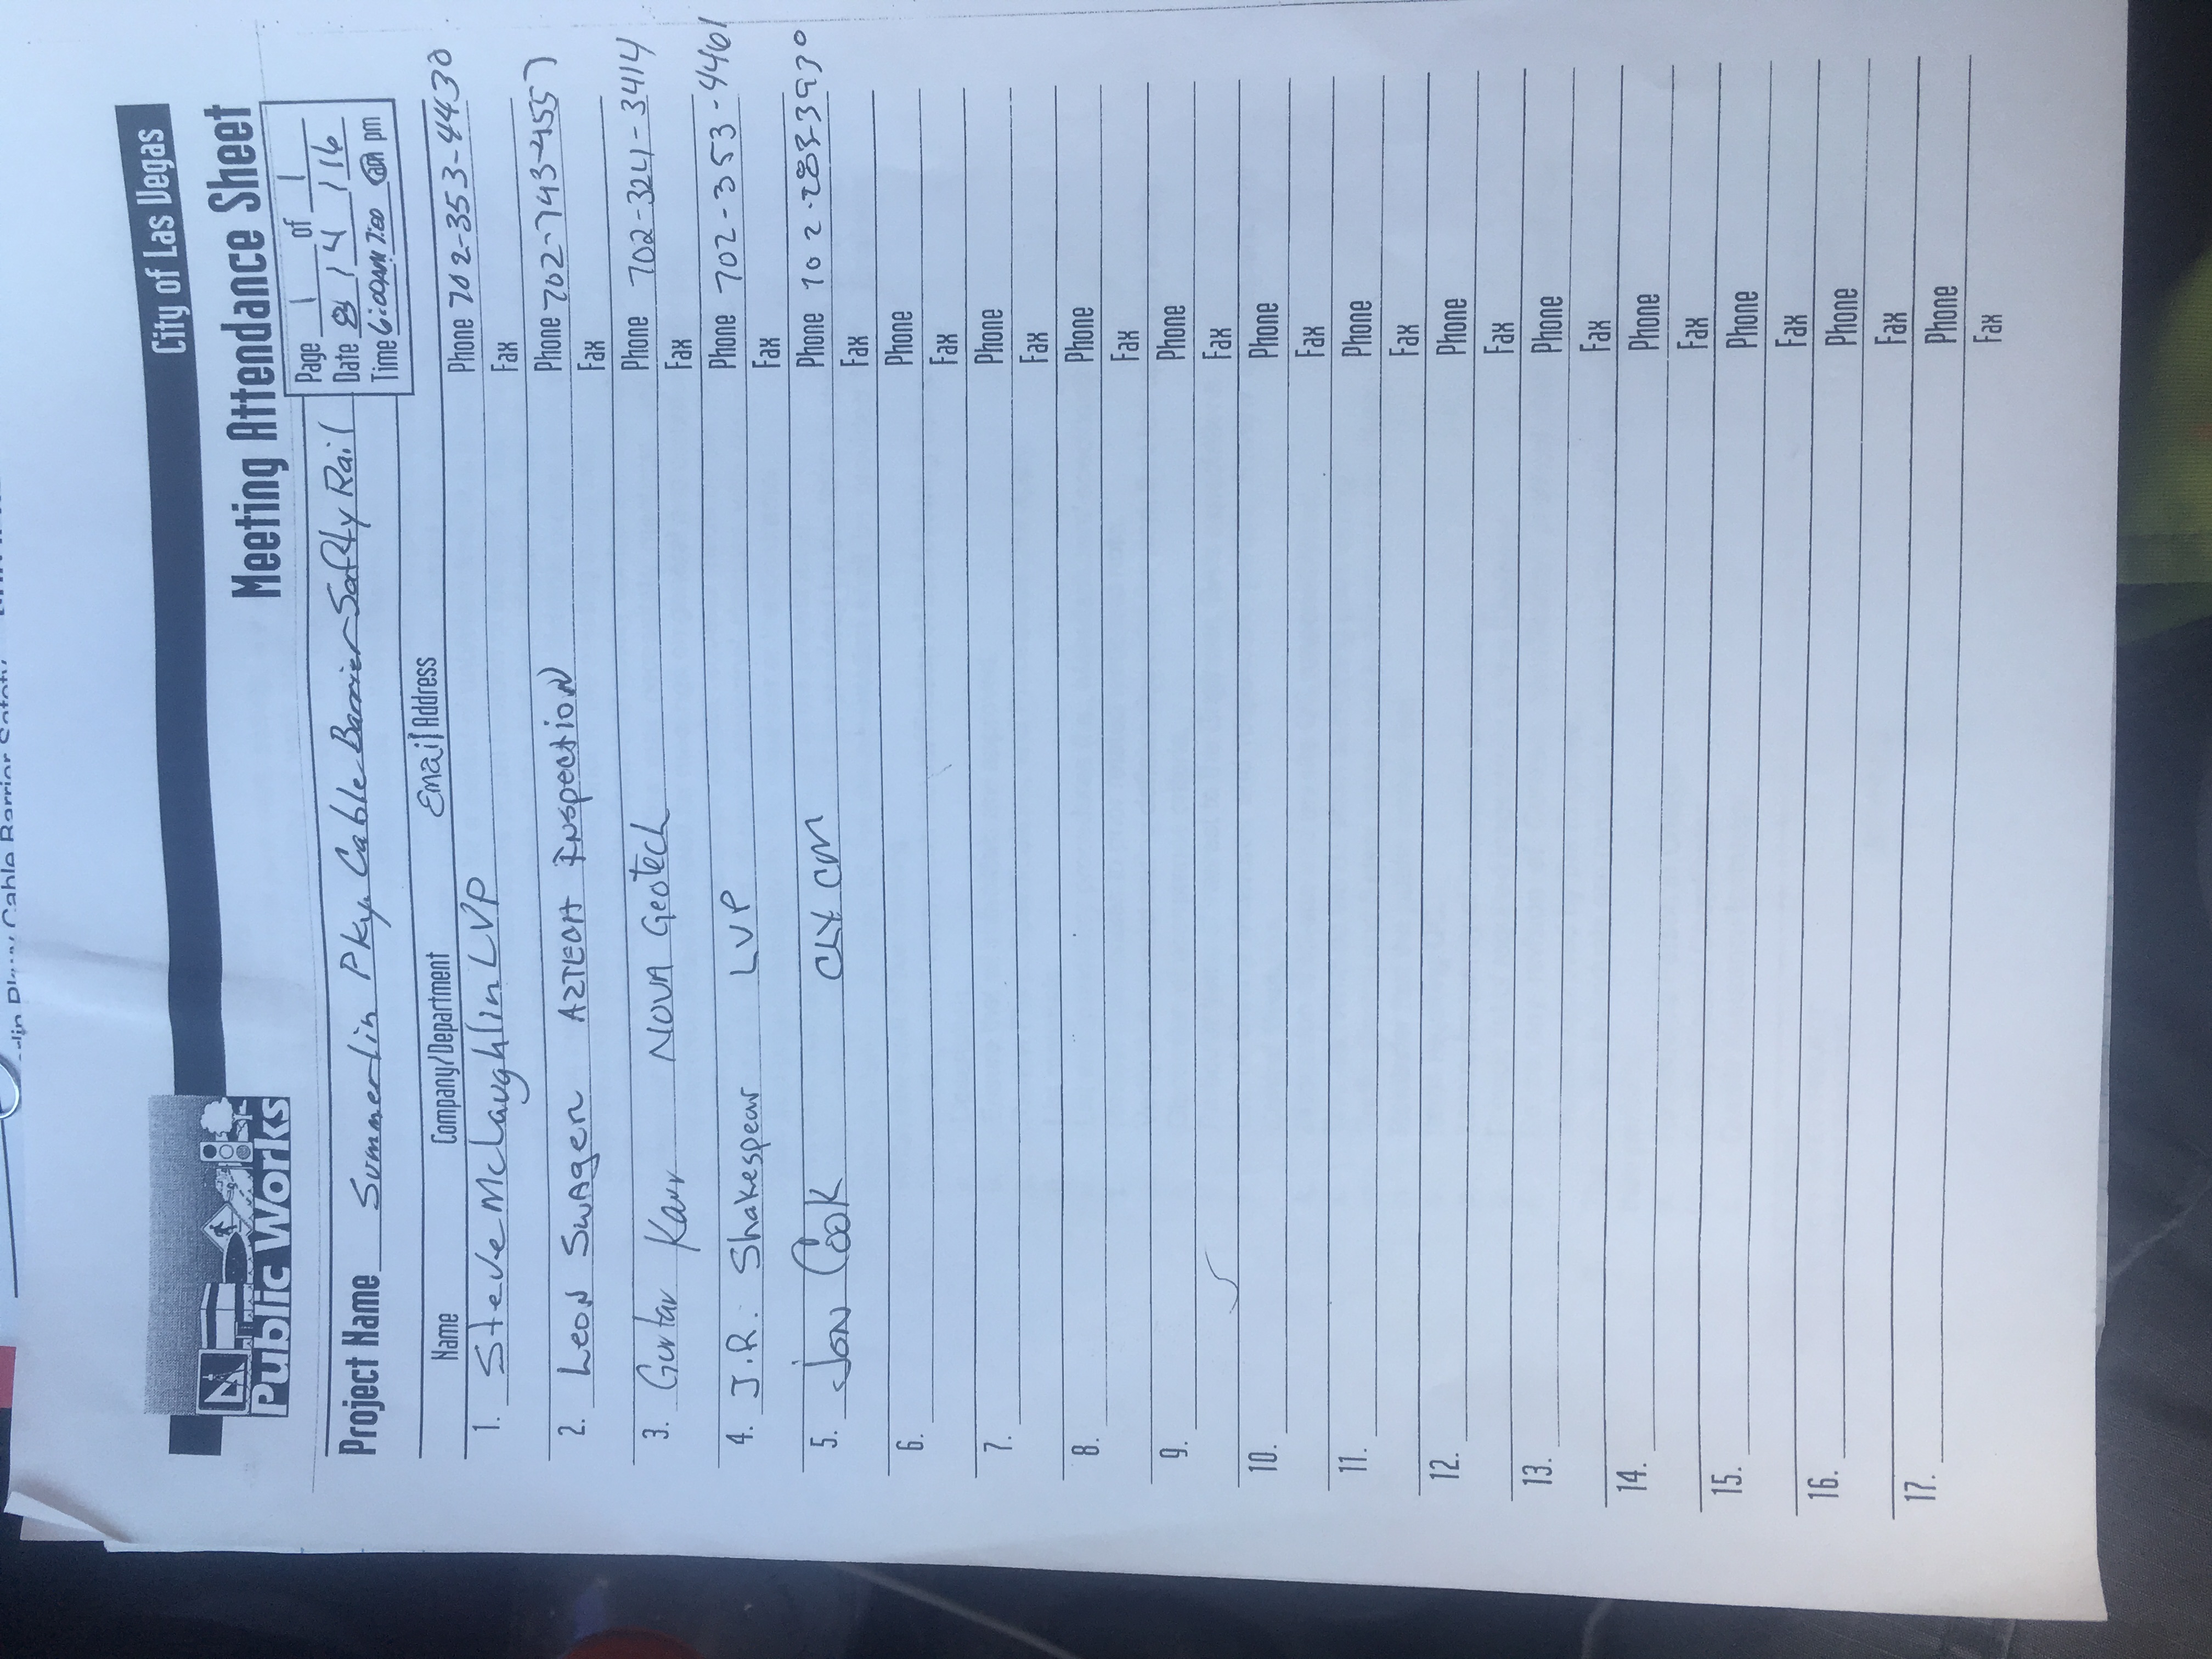 City of Las Vegas
Public Works
Meeting Attendance Sheet
Page 1 of 1
Date 8 / 4 / 16
Time 6:00AM 7:00 am pm
Project Name Summerlin Pky. Cable Barrier Safty Rail
Name Company/Department Email Address
1. Steve McLaughlin LVP Phone 702-353-4430
Fax
2. Leon Swagen AZTECH Inspection Phone 702-743-4557
Fax
3. Karr NOVA Geotech Phone 702-321-3414
Fax
4. J.R. Shakespear LVP Phone 702-353-4461
Fax
5. Jon Cook CLV CM Phone 702-283-3930
Fax
6. Phone
Fax
7. Phone
Fax
8. Phone
Fax
9. Phone
Fax
10. Phone
Fax
11. Phone
Fax
12. Phone
Fax
13. Phone
Fax
14. Phone
Fax
15. Phone
Fax
16. Phone
Fax
17. Phone
Fax